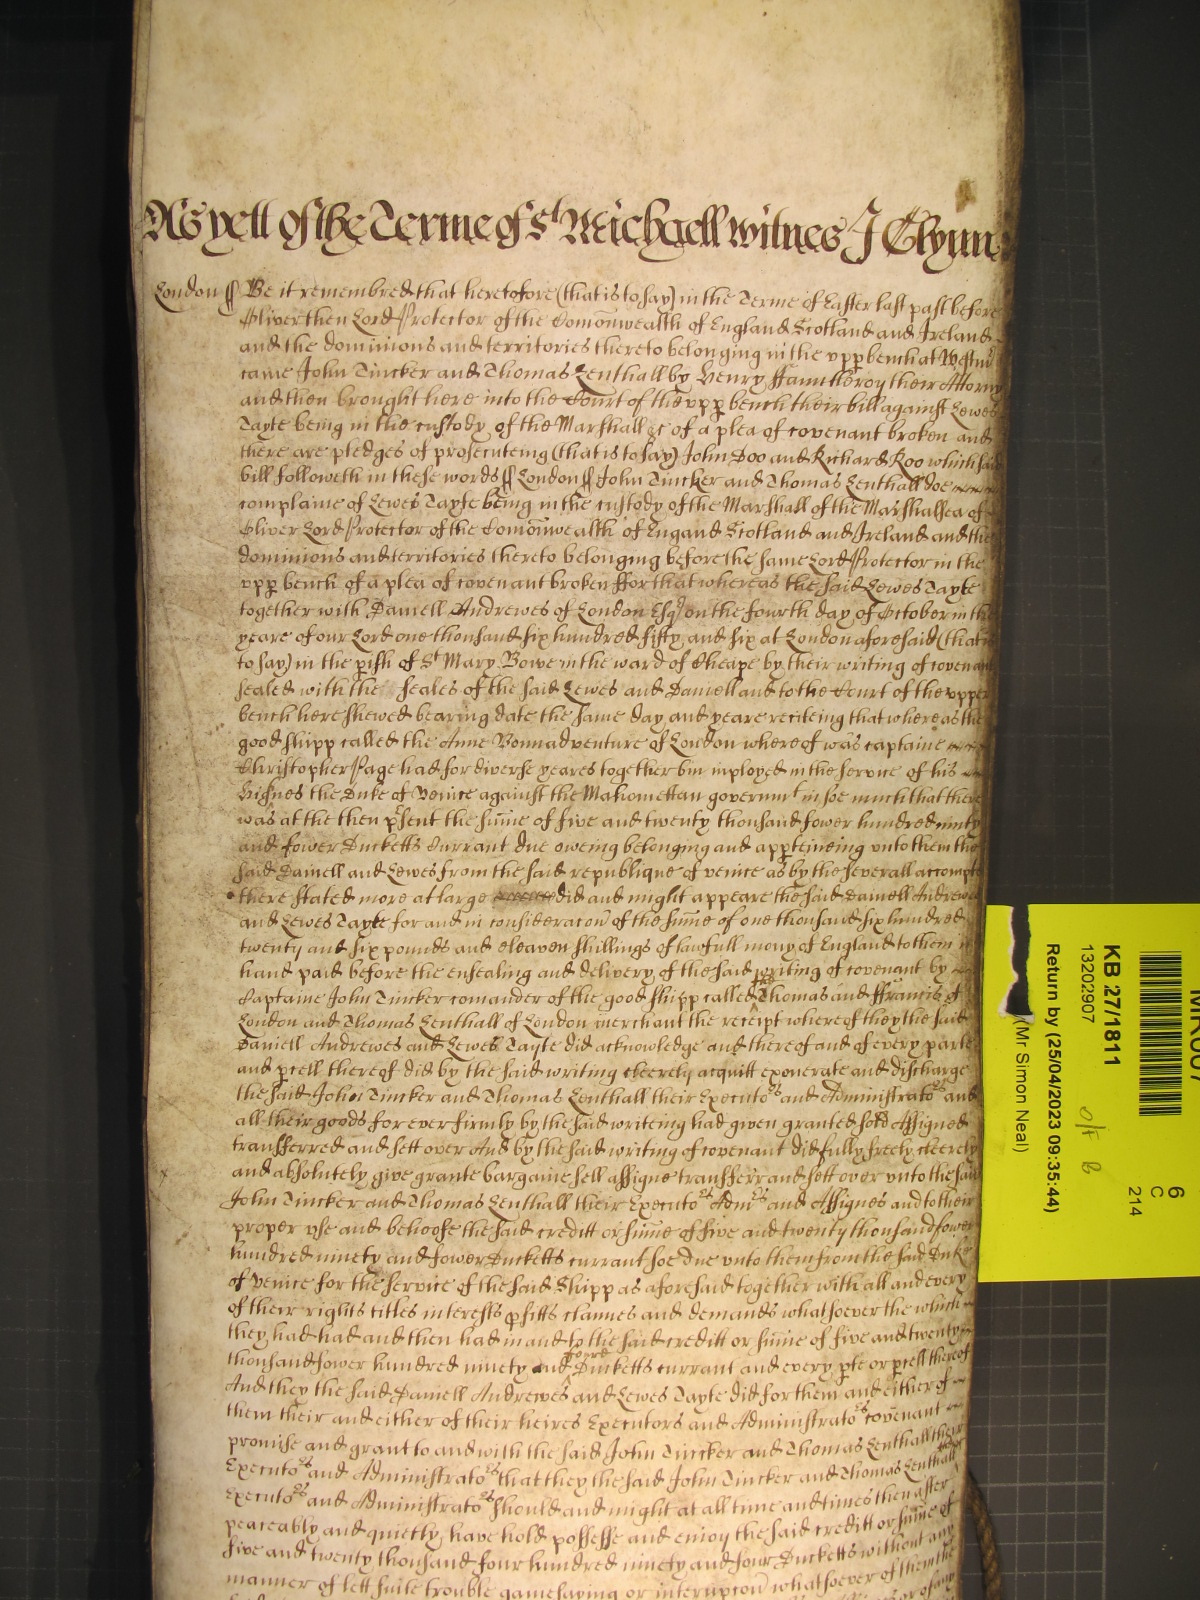 As yett of the Terme of St Michaell witnes J Glynn
London ss Be it remembred that heretofore (that is to say) in the Terme of Easter last past before
Oliver then Lord Protector of the Comonwealth of England Scotland and Ireland
and the dominions and territories thereto belonging in the upp bench at Westmr
came John Tincker and Thomas Lenthall by Henry ffauntleroy their Attorny
and then brought here into the Court of the upp bench their bill against Lewes
Tayte being in the custody of the Marshall &c of a plea of covenant broken and
there are pledges of prosecuteing (that is to say) John Doo and Richard Roo which said
bill followeth in these words ss London ss John Tincker and Thomas Lenthall doe
complaine of Lewes Tayte being in the custody of the Marshall of the Marshalsea of
Oliver Lord Protector of the Comonwealth of Engand Scotland and Ireland and the
dominions and territories thereto belonging before the same Lord Protector in the
upp bench of a plea of covenant broken ffor that whereas the said Lewes Tayte
together with Daniell Andrewes of London Esqr on the fourth day of October in the
yeare of our Lord one thousand six hundred fifty and six at London aforesaid (that is
to say) in the pish of St Mary Bowe in the ward of Cheape by their writing of covenant
sealed with the seales of the said Lewes and Daniell and to the Court of the upper
bench here shewed bearing date the same day and yeare reciteing that whereas the
good shipp called the Anne Bonnadventure of London whereof was captaine
Christopher Page had for diverse yeares together bin imployed in the service of his
Highnes the Duke of Venice against the Mahomettan governmt in soe much that there
was at the then psent the sume of five and twenty thousand fower hundred ninty
and fower Ducketts Currant due oweing belonging and appteineing unto them the
said Daniell and Lewes from the said republique of venice as by the severall accompts
there stated more at large did and might appeare the said Daniell Andrewes
and Lewes Tayte for and in consideracon of the sume of one thousand six hundred
twenty and six pounds and eleaven shillings of lawfull mony of England to them in
hand paid before the ensealing and delivery of the said writing of covenant by
Captaine John Tincker comander of the good shipp called the Thomas and ffrancis of
London and Thomas Lenthall of London merchant the receipt whereof they the said
Daniell Andrewes and Lewes Tayte did acknowledge and thereof and of every parte
and pcell thereof did by the said writing cleerely acquitt exonerate and discharge
the said John Tincker and Thomas Lenthall their Executors and Administrators and
all their goods for ever firmly by the said writeing had given granted sold Assigned
transferred and sett over And by the said writing of covenant did fully freely cleerely
and absolutely give grante bargaine sell assigne transferr and sett over unto the said
John Tincker and Thomas Lenthall their Executors Admrs and Assignes and to their
proper use and behoofe the said creditt or sume of five and twenty thousand fower
hundred ninety and fower Ducketts currant soe due unto them from the said Duke
of Venice for the service of the said Shipp as aforesaid together with all and every
of their rights titles interests pfitts claimes and demands whatsoever the which
they had had and then had in and to the said creditt or sume of five and twenty
thousand fower hundred ninety and fowre Ducketts currant and every pte or pcell thereof
And they the said Daniell Andrewes and Lewes Tayte did for them and either of
them their and either of their heires Executors and Administrators covenant
promise and grant to and with the said John Tincker and Thomas Lenthall their
Executors and Administrators that they the said John Tincker and Thomas Lenthall their
Executors and Administrators should and might at all time and times then after
peaceably and quietly have hold possesse and enjoy the said creditt or sume of
five and twenty thousand four hundred ninety and four Ducketts without any
manner of lett suite trouble gainesaying or interupcon whatsoever of them the
KB 27/1811
13202907
Return by (25/04/2023 09:35:44)
(Mr Simon Neal)
6
C
214